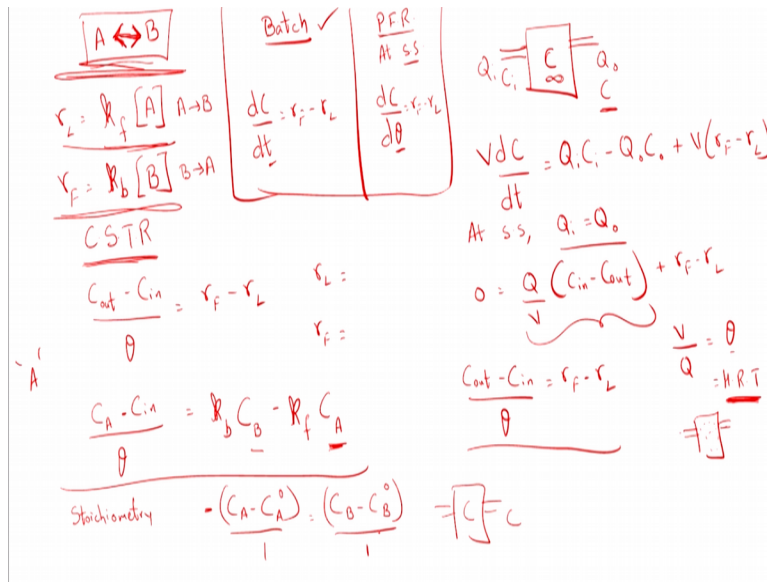 A ↔ B
r_L = k_f [A] A→B
r_F = k_b [B] B→A
CSTR
(C_out - C_in)/θ = r_F - r_L
r_L =
r_F =
'A'
(C_A - C_in)/θ = k_b C_B - k_f C_A
Stoichiometry -(C_A - C_A°)/1 = (C_B - C_B°)/1
Batch ✓
dC/dt = r_F - r_L
PFR
At SS
dC/dθ = r_F - r_L
Q_i C_i
C
∞
Q_o
C
V dC/dt = Q_i C_i - Q_o C_o + V(r_F - r_L)
At SS, Q_i = Q_o
0 = Q/V (C_in - C_out) + r_F - r_L
V/Q = θ
= HRT
(C_out - C_in)/θ = r_F - r_L
C C